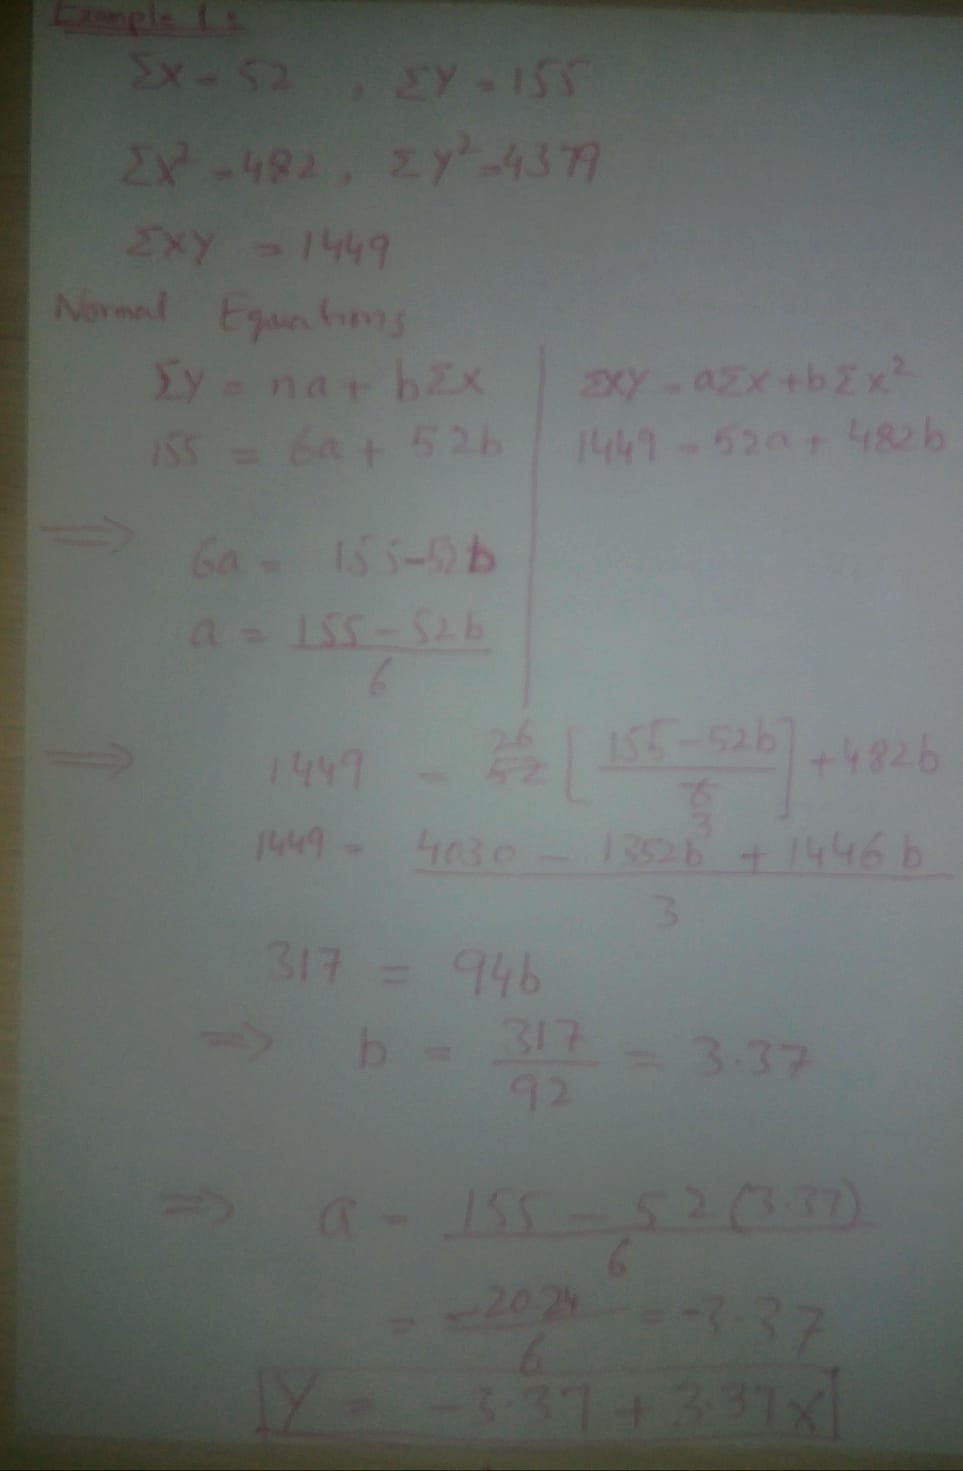 Example 1:
ΣX = 52 , ΣY = 155
ΣX² = 482, ΣY² = 4379
ΣXY = 1449
Normal Equations
ΣY = na + bΣX | ΣXY = aΣX + bΣX²
155 = 6a + 52b | 1449 = 52a + 482b
⇒ 6a = 155-52b
a = (155 - 52b)/6
⇒ 1449 = 26 52 [(155 - 52b)/6 3] + 482b
1449 = (4030 - 1352b + 1446b)/3
317 = 94b
⇒ b = 317/92 = 3.37
⇒ a = (155 - 52(3.37))/6
= -20.24/6 = -3.37
Y = -3.37 + 3.37X